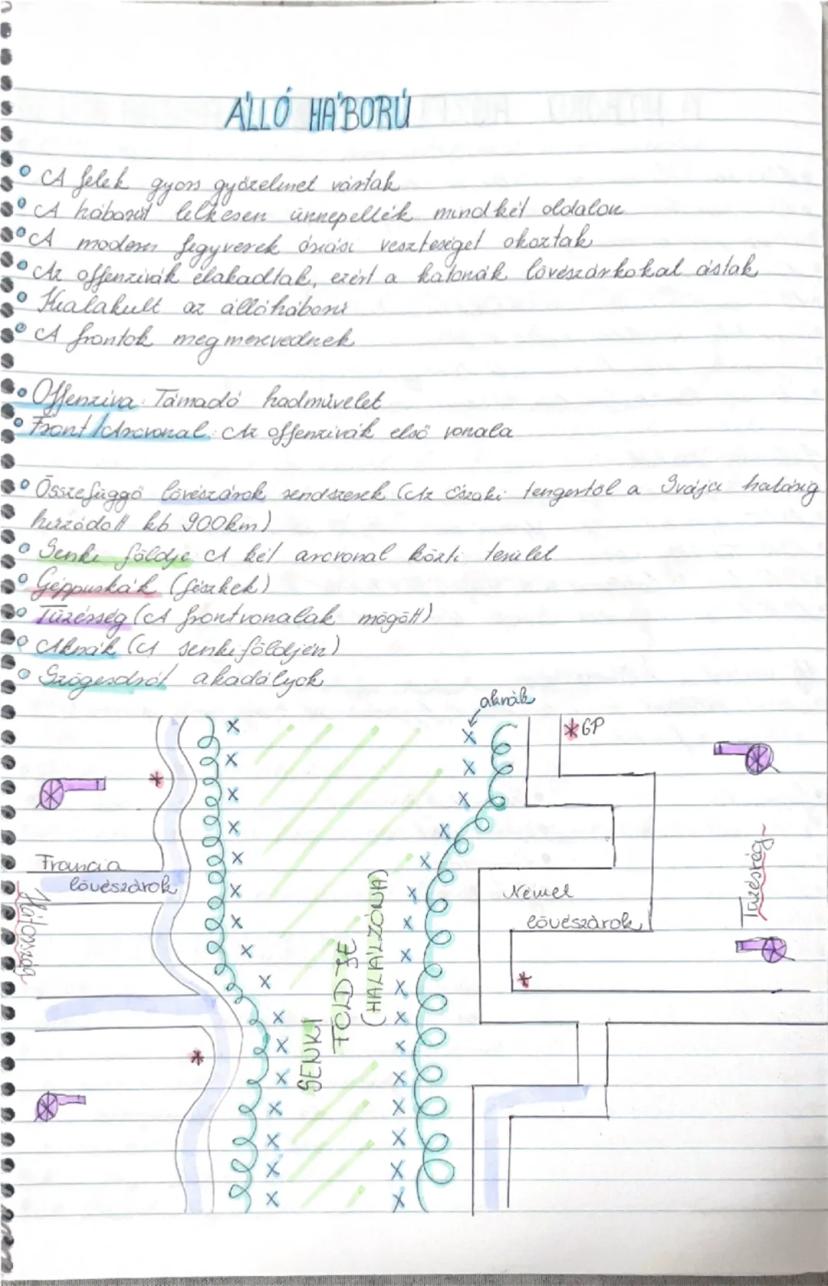 ÁLLÓ HÁBORÚ
A felek gyors győzelmet vártak
A háborút lelkesen ünnepelték mindkét oldalon
A modern fegyverek óriási veszteséget okoztak
Az offenzívák elakadtak, ezért a katonák lövészárkokat ástak
Kialakult az állóháború
A frontok megmerevednek
Offenzíva: Támadó hadművelet
Front/Arcvonal: Az offenzívák első vonala
Összefüggő lövészárok rendszerek (Az Északi tengertől a Svájci határig
húzódott kb 900km)
Senki földje A két arcvonal közti terület
Géppuskák (fészkek)
Tüzérség (A frontvonalak mögött)
Aknák (A senkiföldjén)
Szögesdrót akadályok
aknák
*GP
Francia
lövészárok
Hátország
SENKI
FÖLDJE
(HALÁLZÓNA)
Német
lövészárok
Tüzérség